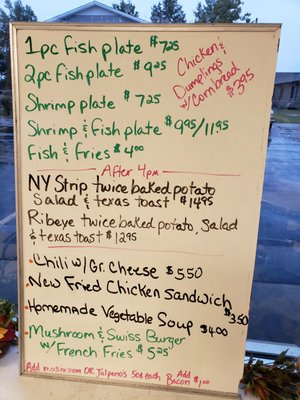 1pc Fish plate $7.25
2pc fish plate $9.25
Chicken &
Dumplings
w/ Cornbread
$3.95
Shrimp plate $7.25
Shrimp & fish plate $9.95/11.95
Fish & fries $4.00
After 4pm
NY Strip twice baked potato
Salad & texas toast $14.95
Ribeye twice baked potato, Salad
& texas toast $12.95
Chili w/Gr. Cheese $5.50
New Fried Chicken Sandwich
$3.50
Homemade Vegetable Soup $4.00
Mushroom & Swiss Burger
w/ French Fries $5.25
Add mushroom OR Jalpeno's 50¢ each
Add
Bacon $1.00